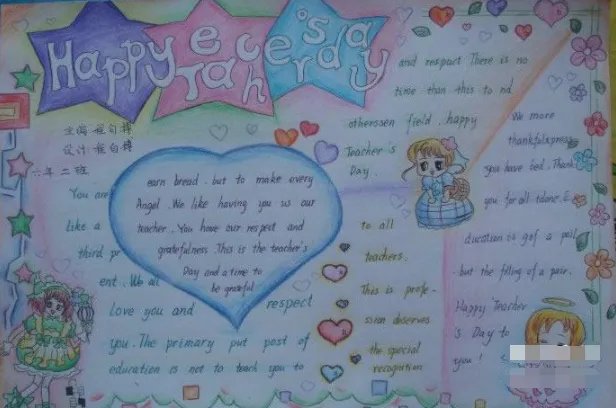 Happy Teacher's day
主编:程自樽
设计:程自樽
六年二班
You are
Like a
third pr
ent. We all
Love you and respect
you. The primary put post of
education is not to teach you to
earn bread. but to make every
Angel. We like having you us our
teacher. You have our respect and
gratefulness. This is the teacher's
Day and a time to
be grateful
and respact There is no
time than this to nd
otherssen field. happy
Teacher's
Day.
to all
teachers.
This is profe-
ssion deserves
the special
recogortion
We more
thankfulxpress
you have tied. Thank
you for all tdone. E
ducation is gof a pail
but the filling of a pair.
Happy Teacher
's Day to
you!